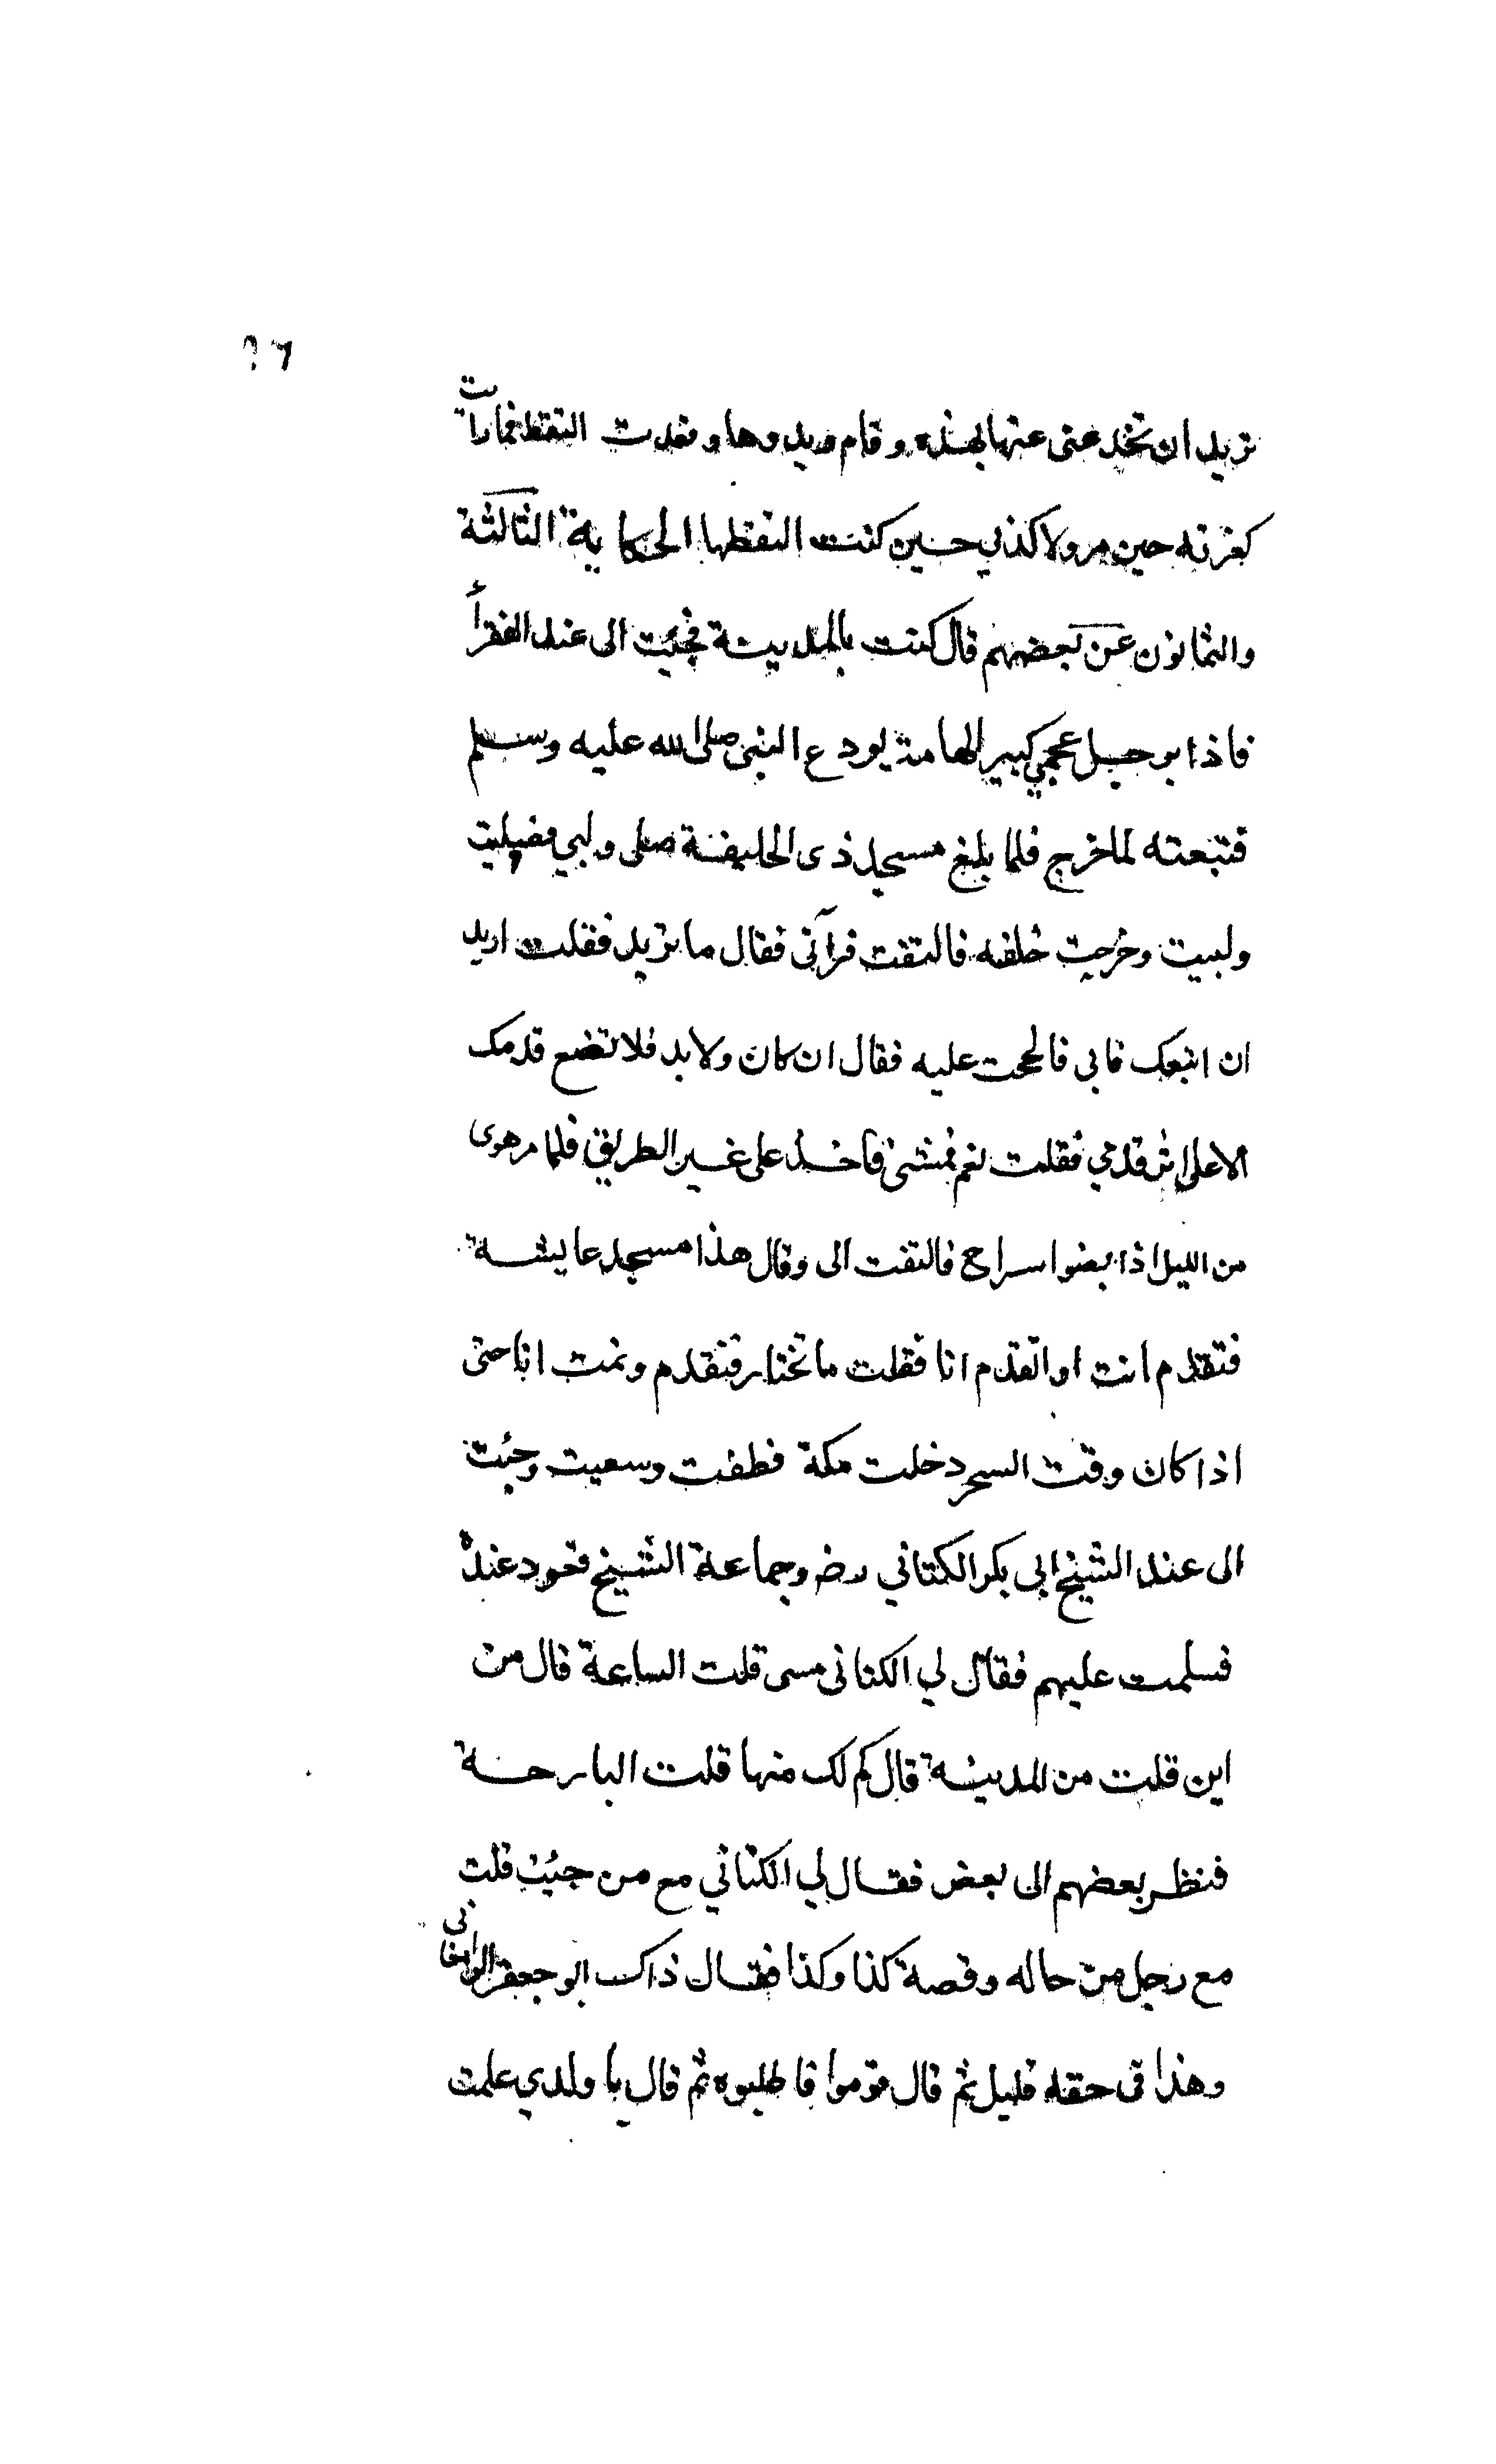 ٩٦
تريد ان تخدعنى عنها بهذه وقام وبددها وقعدت التقط فما رات
كعزته حين مر ولا كذلي حين كنت التقطها الحكاية الثالثة
والثمانون عن بعضهم قال كنت بالمدينة فجئت الى عند الفقرأ
فاذا برجل عجمي كبير الهامة يودع النبى صلى الله عليه وسلم
فتبعته لما خرج فلما بلغ مسجد ذى الحليفة صلى ولبي فصليت
ولبيت وخرجت خلفه فالتفت فرآنى فقال ما تريد فقلت اريد
ان اتبعك فابى فالححت عليه فقال ان كان ولا بد فلا تضع قدمك
الا على اثر قدمي فقلت نعم فمشى فاخذ على غير الطريق فلما مر هوى
من الليل اذا بضوا سراج فالتفت الى وقال هذا مسجد عايشة
فتقدم انت او اتقدم انا فقلت ما تختار فتقدم ونمت انا حتى
اذا كان وقت السحر دخلت مكة فطفت وسعيت وجئت
الى عند الشيخ ابى بكر الكتاني رضـ وجماعة الشيخ قعود عنده
فسلمت عليهم فقال لي الكتانى متى قلت الساعة قال من
اين قلت من المدينة قال كم لك منها قلت البارحة
فنظر بعضهم الى بعض فقال لي الكتاني مع من جئت قلت
مع رجل من حاله وقصة كذا وكذا فقال ذاك ابو جعفر الدامغانى
وهذا فى حقه قليل ثم قال قوموا فاطلبوه ثم قال يا ولدي علمت